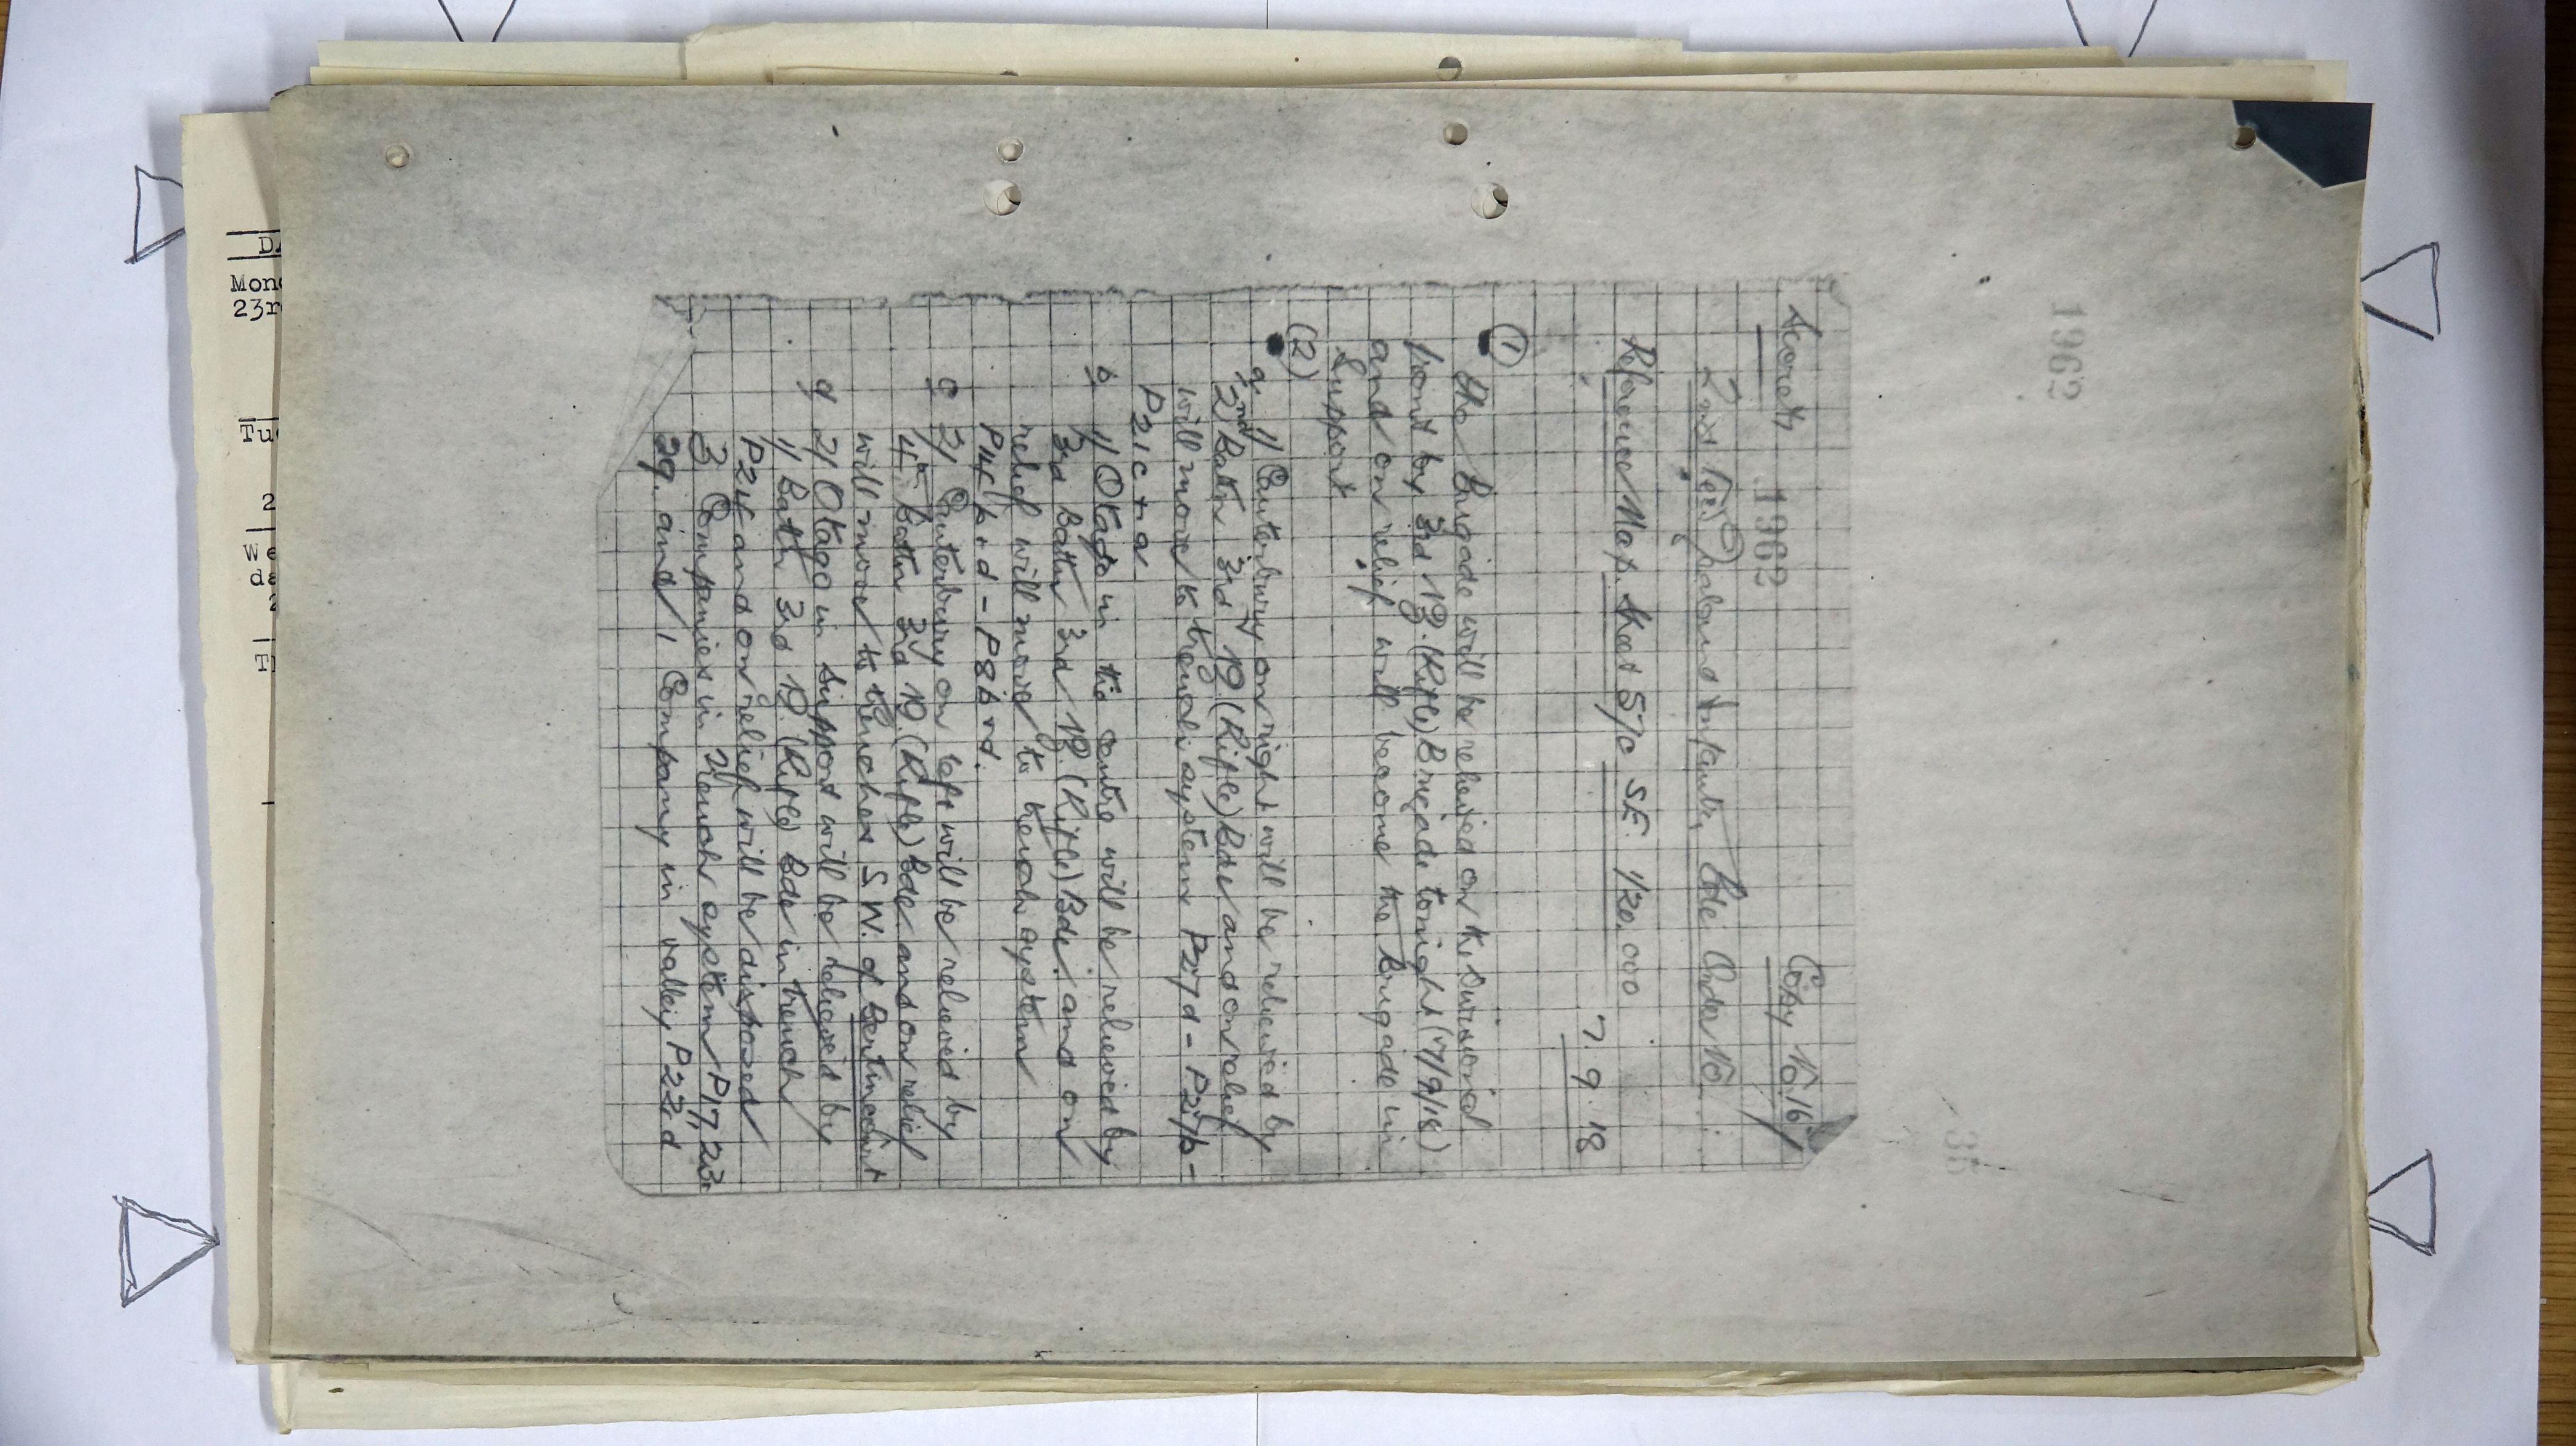 1962
35
Secret
1962
Copy No. 16
2nd New Zealand Infantry Bde. Order No.
Reference Map. Sheet 57c S.E. 1/20.000
7.9.18
(1)
The Brigade will be relieved on the Divisional
front by 3rd N.Z. (Rifle) Brigade tonight (7/9/18)
and on relief will become the Brigade in
Support
(2)
a 1/ Canterbury on right will be relieved by
2nd Battn 3rd N.Z. (Rifle) Bde and on relief
will move to trench system P27d - P27b -
P21c + a
b 1/ Otago in the centre will be relieved by
3rd Battn 3rd N.Z. (Rifle) Bde. and on
relief will move to trench system
P14c b + d - P8b + d.
c 2/ Canterbury on left will be relieved by
4th Battn 3rd N.Z. (Rifle) Bde and on relief
will move to trenches S.W. of Bertincourt
d 2/ Otago in support will be relieved by
1/ Battn 3rd N.Z. (Rifle) Bde in trench
P24 and on relief will be disposed
3 Companies in Trench system P17, 23.
29. and 1 Company in valley P22d
DA
Mon
23r
Tu
2
We
da